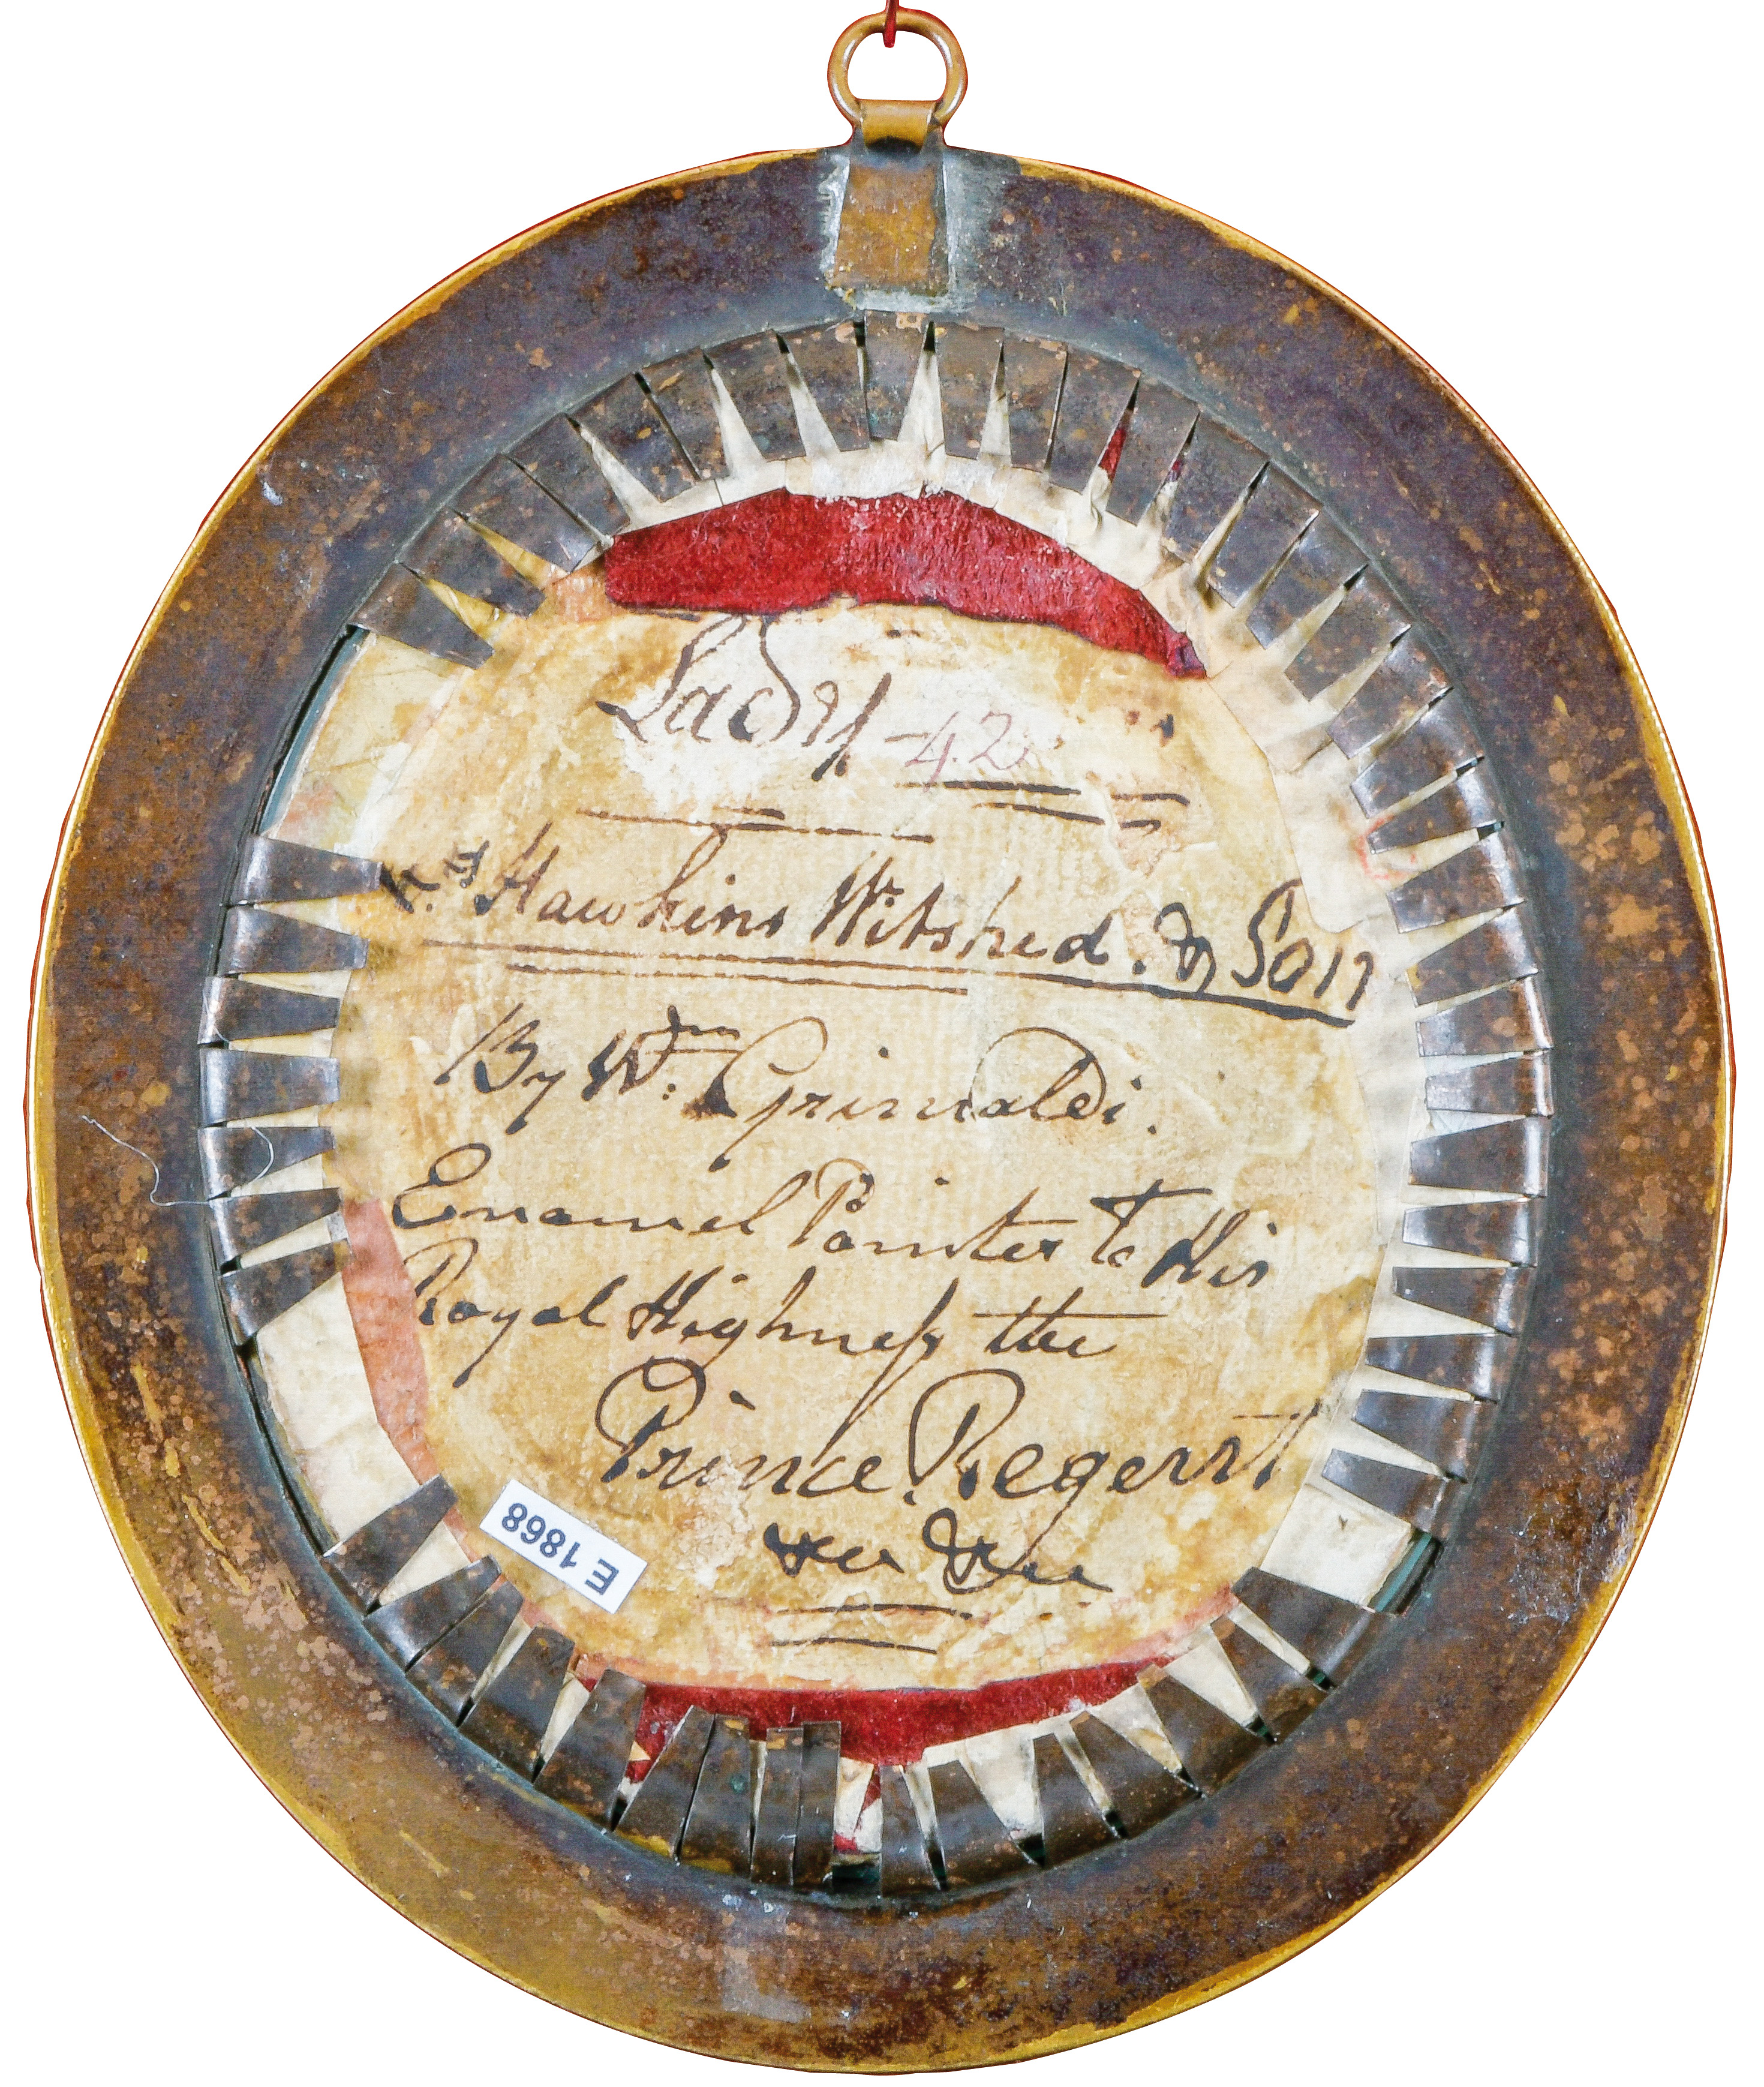 Lady - 42
Hawkins Witshed. & Son
By Wm: Grimaldi.
Enamel Painter to His
Royal Highneſs the
Prince Regent
&c &c
E 1868